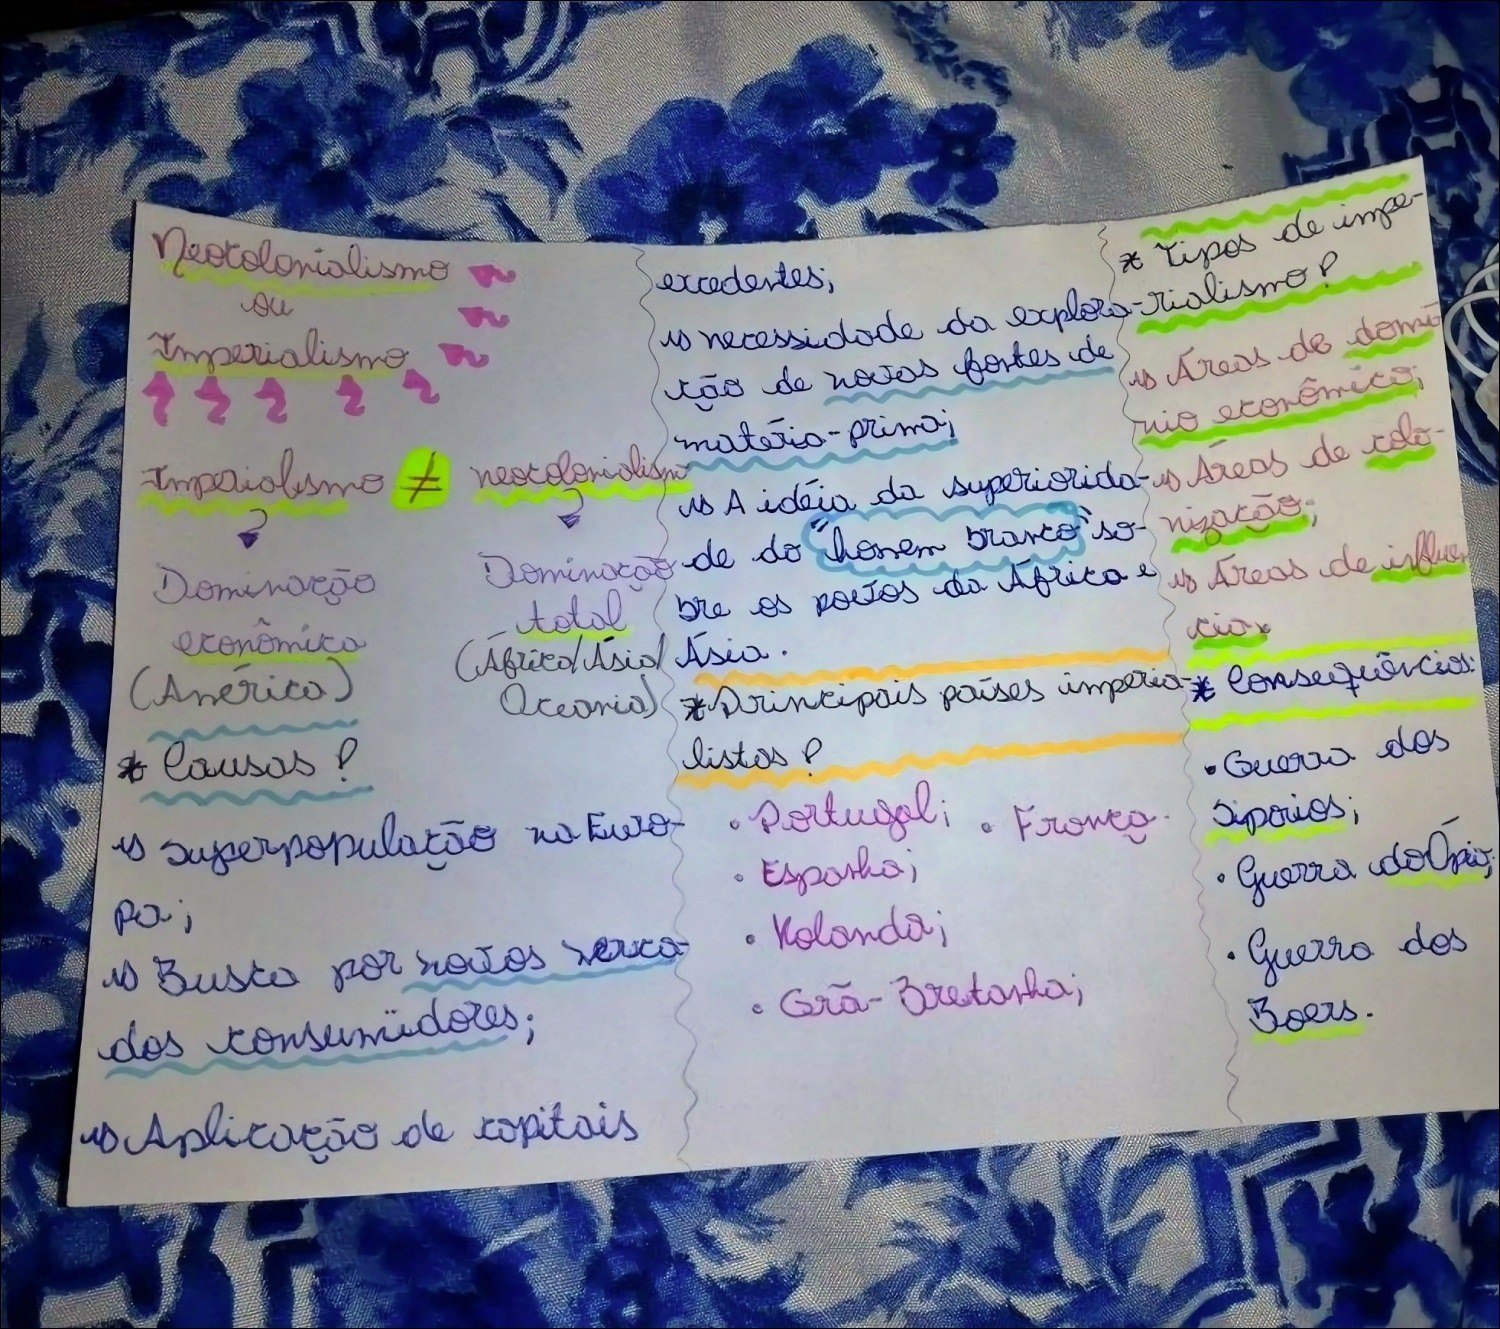 Neocolonialismo
ou
Imperialismo
Imperialismo ≠ neocolonialismo
Dominação
econômica
(América)
Dominação
total
(África/Ásia/
Oceania)
* Causas?
↳ superpopulação na Euro-
pa;
↳ Busca por novos merca-
dos consumidores;
↳ Aplicação de capitais
excedentes;
↳ necessidade da explora-
ção de novas fontes de
matéria-prima;
↳ A idéia da superiorida-
de do "homem branco" so-
bre os povos da África e
Ásia.
* Principais países imperia-
listas?
• Portugal; • França.
• Espanha;
• Holanda;
• Grã-Bretanha;
* Tipos de impe-
rialismo?
↳ Áreas de domí
nio econômico;
↳ Áreas de colo-
nização;
↳ Áreas de influên
cia.
* Consequências:
• Guerra dos
Siporios;
• Guerra do Ópio;
• Guerra dos
Boers.